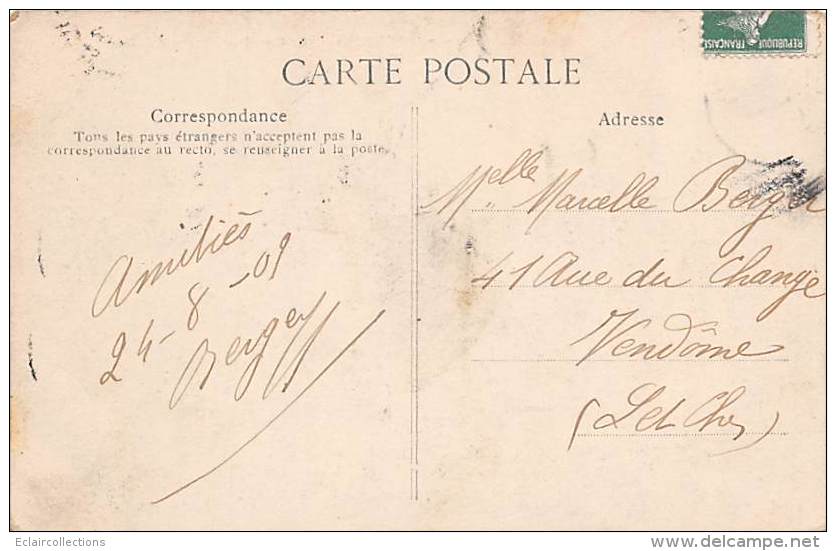 REPUBLIQUE FRANÇAISE
CARTE POSTALE
Correspondance
Tous les pays étrangers n'acceptent pas la
correspondance au recto, se renseigner à la poste.
Amitiés
24-8-09
Berger
Adresse
Melle Marcelle Berger
41 Rue du Change
Vendôme
(L et Cher)
Eclaircollections
www.delcampe.net